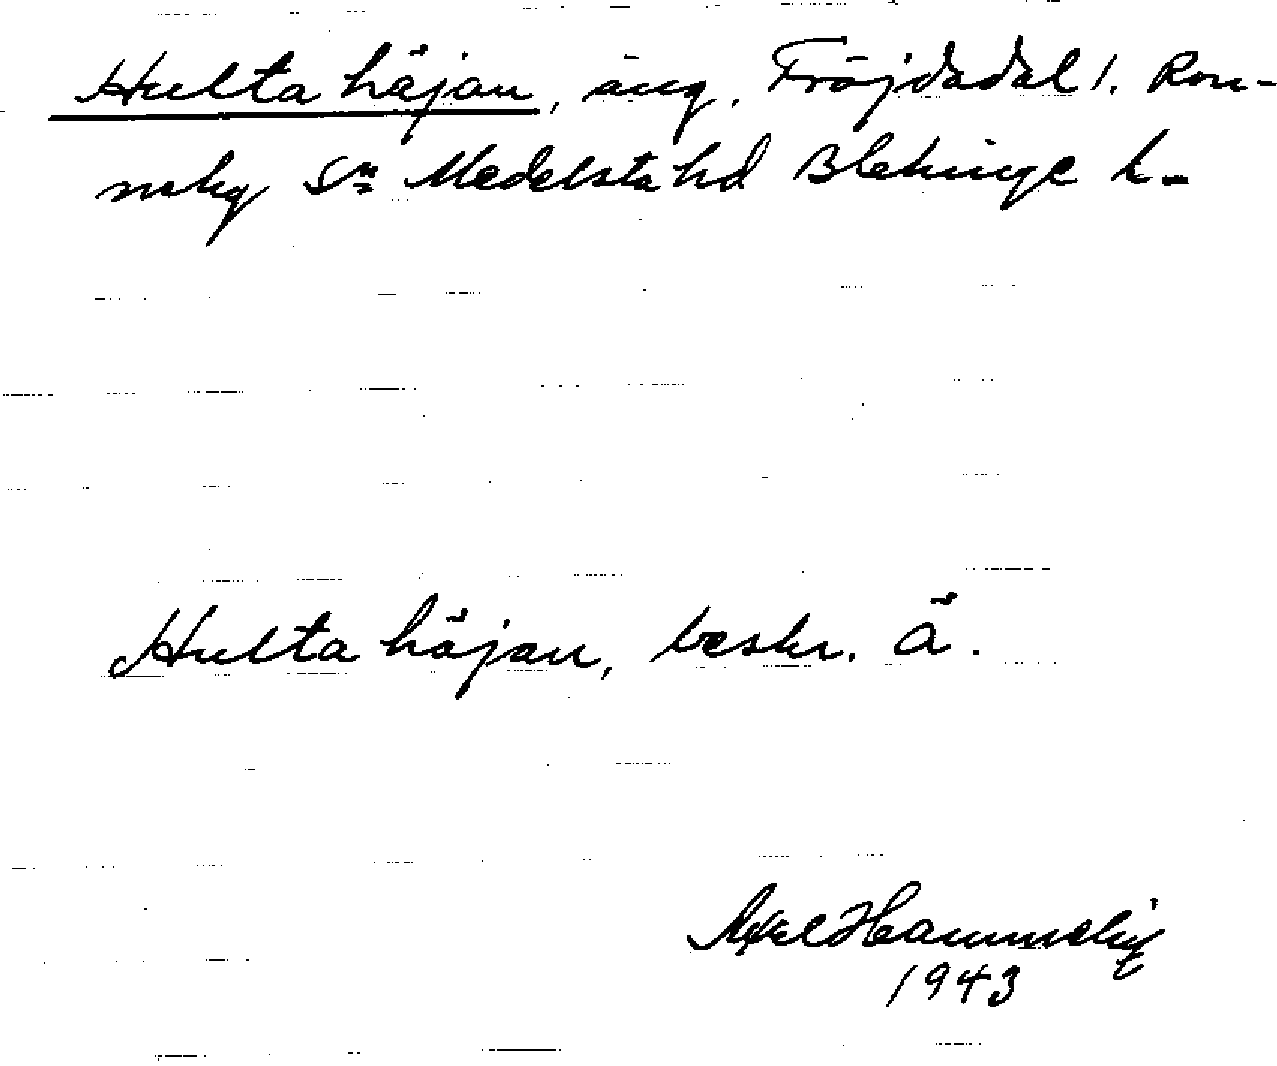 Hulta häjan, äng, Fröjdadal 1. Ron-
neby Sn Medelsta hd Blekinge l.
Hulta häjan, beskr. Ä.
Axel Hammelig
1943